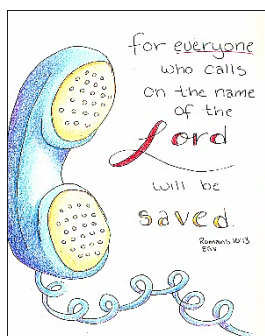 for everyone
who calls
on the name
of the
Lord
will be
saved.
Romans 10:13
ESV